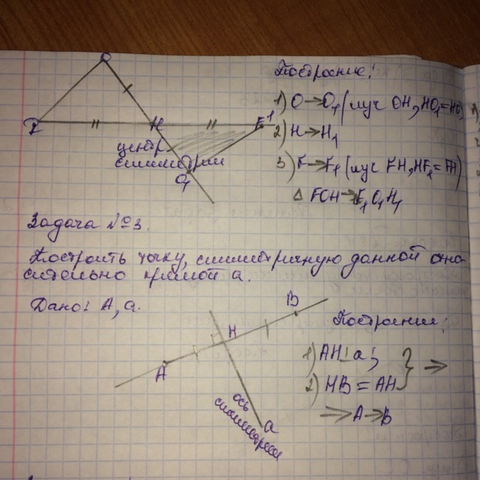 O
F
H
F1
центр
симметрии
O1
Построение:
1) O→O1 (луч OH, HO1=HO)
2) H→H1
3) F→F1 (луч FH, HF1=FH)
△ FOH→F1O1H1
Задача №3.
Построить точку, симметричную данной отно
сительно прямой a.
Дано: A, a.
B
H
A
a
ось
симметрии
Построение:
1) AH⊥a;
2) HB=AH } ⇒
⇒ A→B